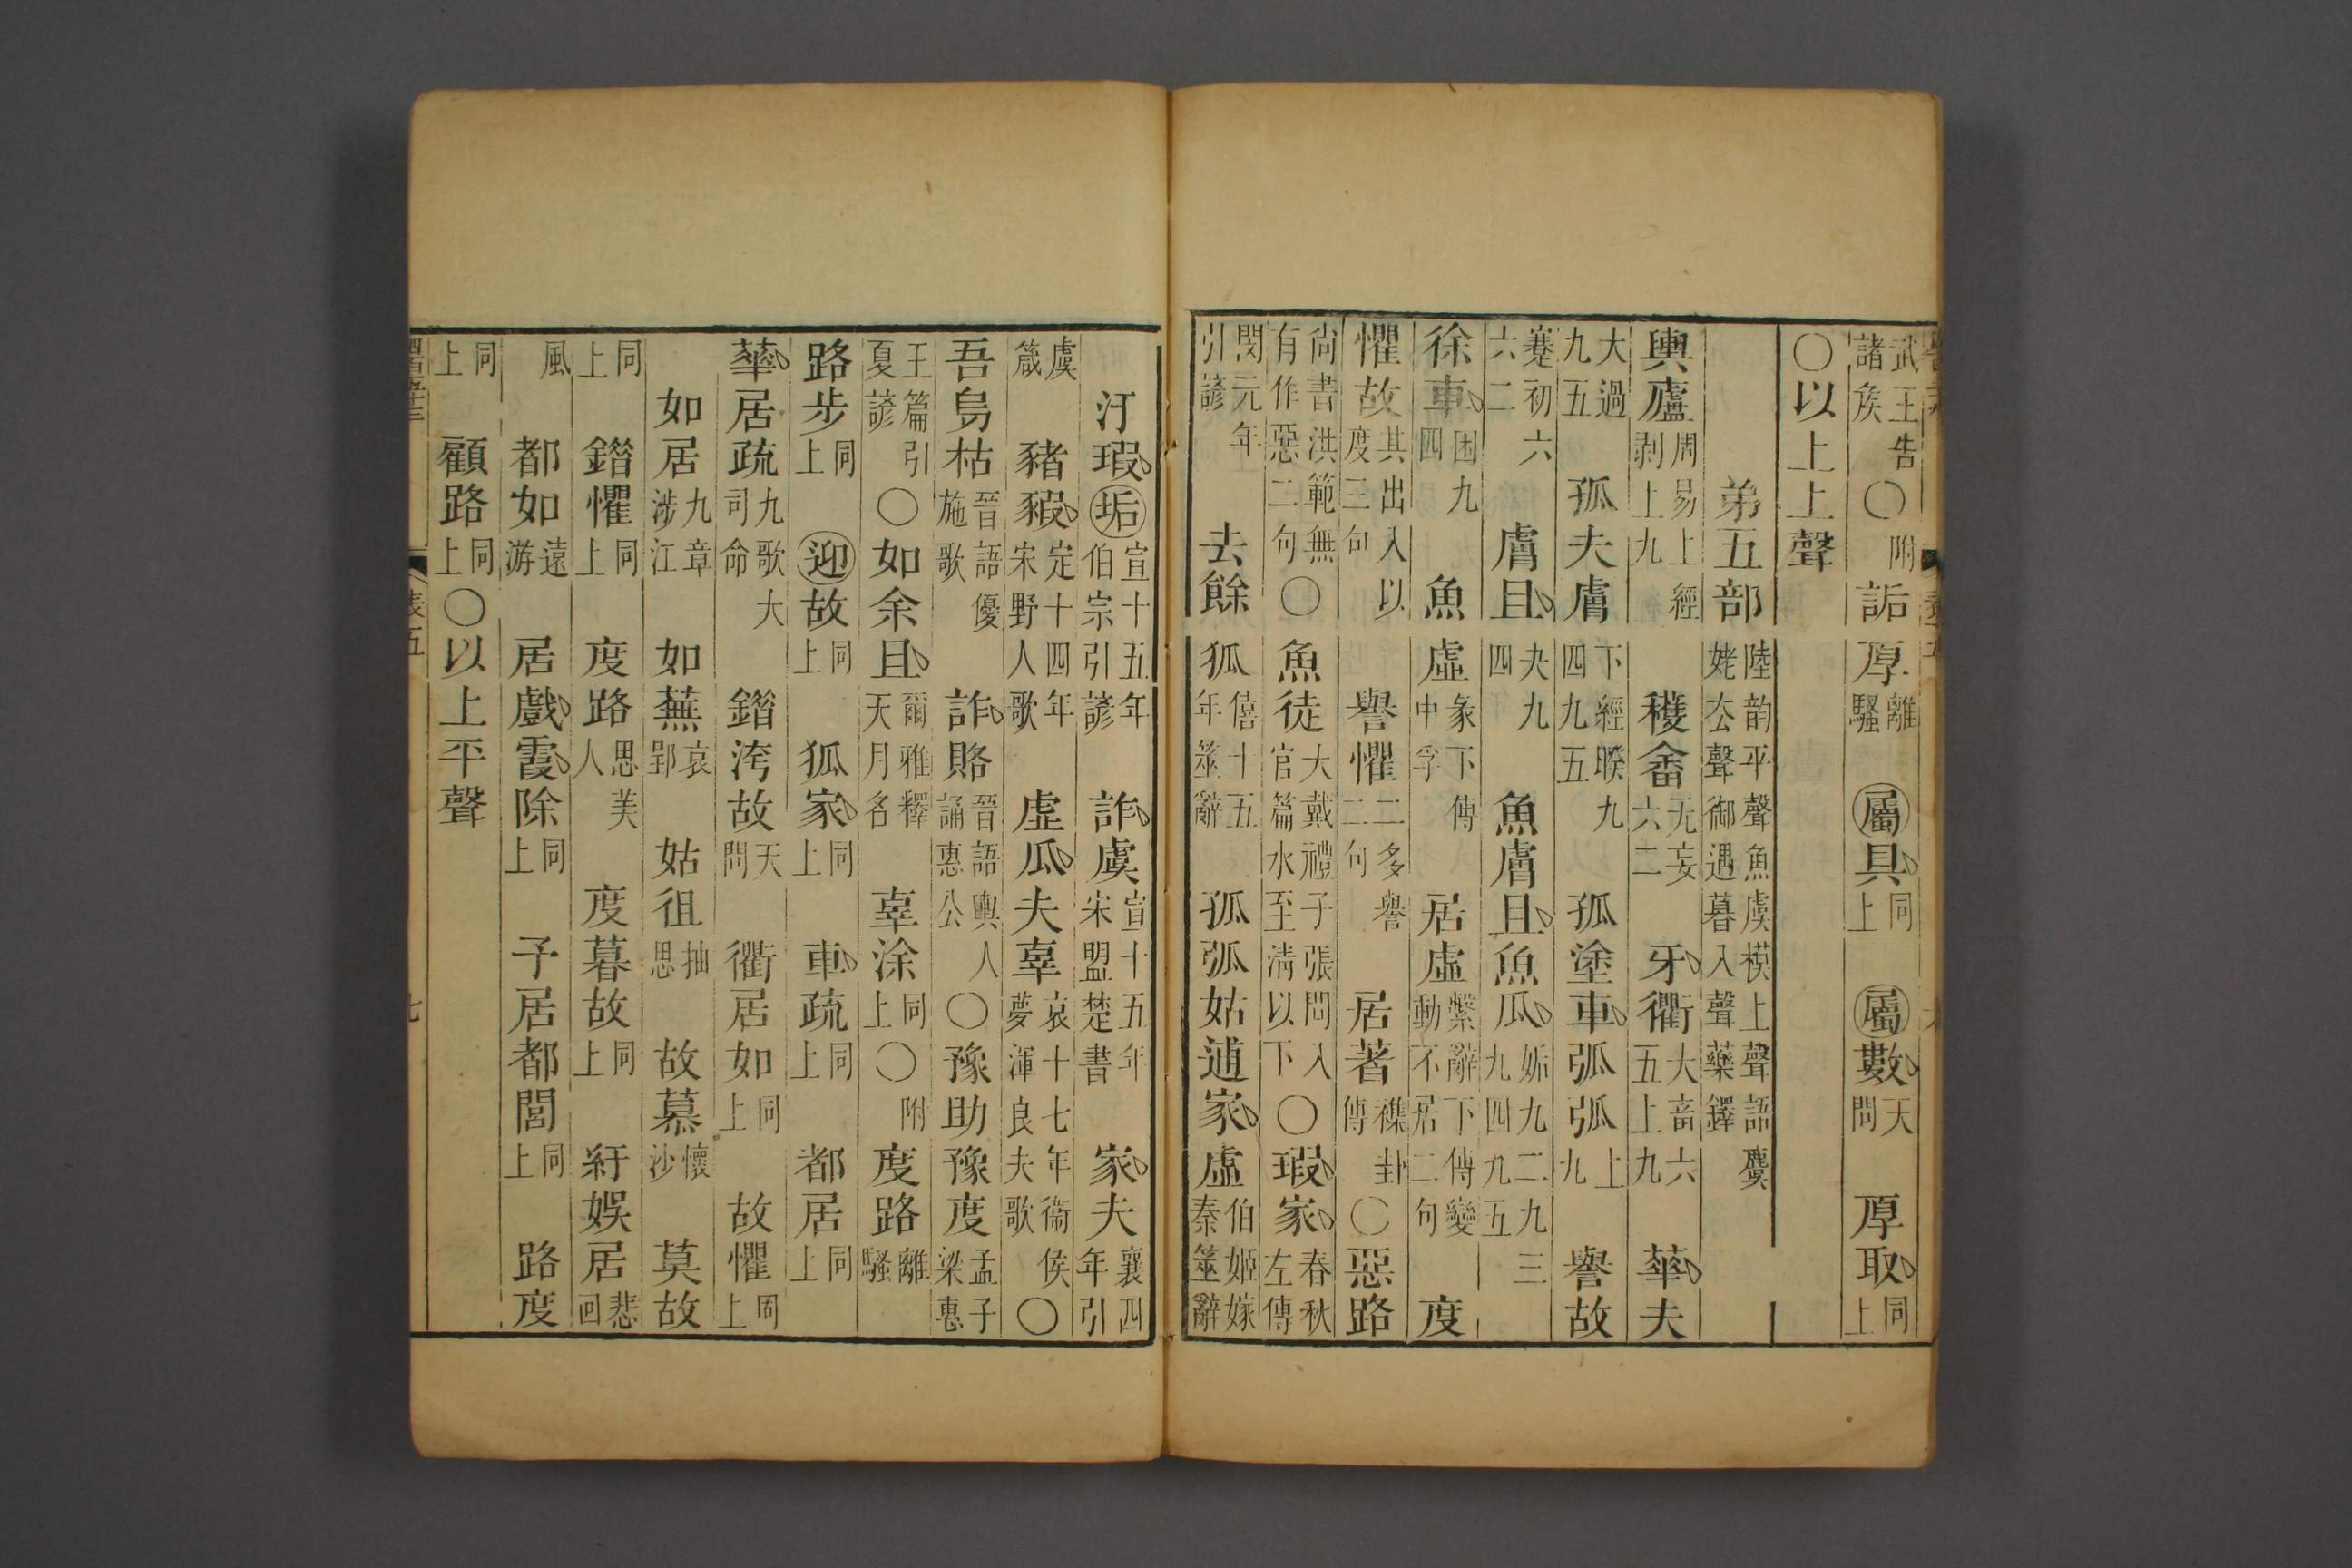 武王告諸矦〇附詬厚離騷㊀屬具同上屬數天問厚取同上
〇以上上聲
弟五部陸韵平聲魚虞模上聲語麌姥去聲御遇暮入聲藥鐸
輿廬周易上經剥上九穫畬无妄六二牙衢大畜六五上九華夫
大過九五孤夫膚下經睽九四九五孤塗車弧弧上九譽故
蹇初六六二膚且夬九四魚膚且魚瓜姤九二九三九四九五
徐車困九四魚虛彖下傳中孚居虛繫辭下傳變動不居二句度
懼故其出入以度三句譽懼二多譽二句居著襍卦傳〇惡路
尚書洪範無有作惡二句〇魚徒大戴禮子張問入官篇水至淸以下〇瑕家春秋左傳
閔元年引諺去餘狐僖十五年筮辭孤弧姑逋家虛伯姬嫁秦筮辭
汙瑕垢宣十五年伯宗引諺詐虞宣十五年宋盟楚書家夫襄四年引
虞箴豬豭定十四年宋野人歌虛瓜夫辜哀十七年衞侯夢渾良夫歌〇
吾烏枯晉語優施歌詐賂晉語輿人誦惠公〇豫助豫度孟子梁惠
王篇引夏諺〇如余且爾雅釋天月名辜涂同上〇附度路離騷
路步同上迎故同上狐家同上車疏同上都居同上
華居疏九歌大司命鐕洿故天問衢居如同上故懼同上
如居九章涉江如蕪哀郢姑徂抽思故慕懷沙莫故
同上鐕懼同上度路思美人度暮故同上紆娛居悲回
風都如遠游居戲霞除同上予居都閭同上路度
同上顧路同上〇以上平聲